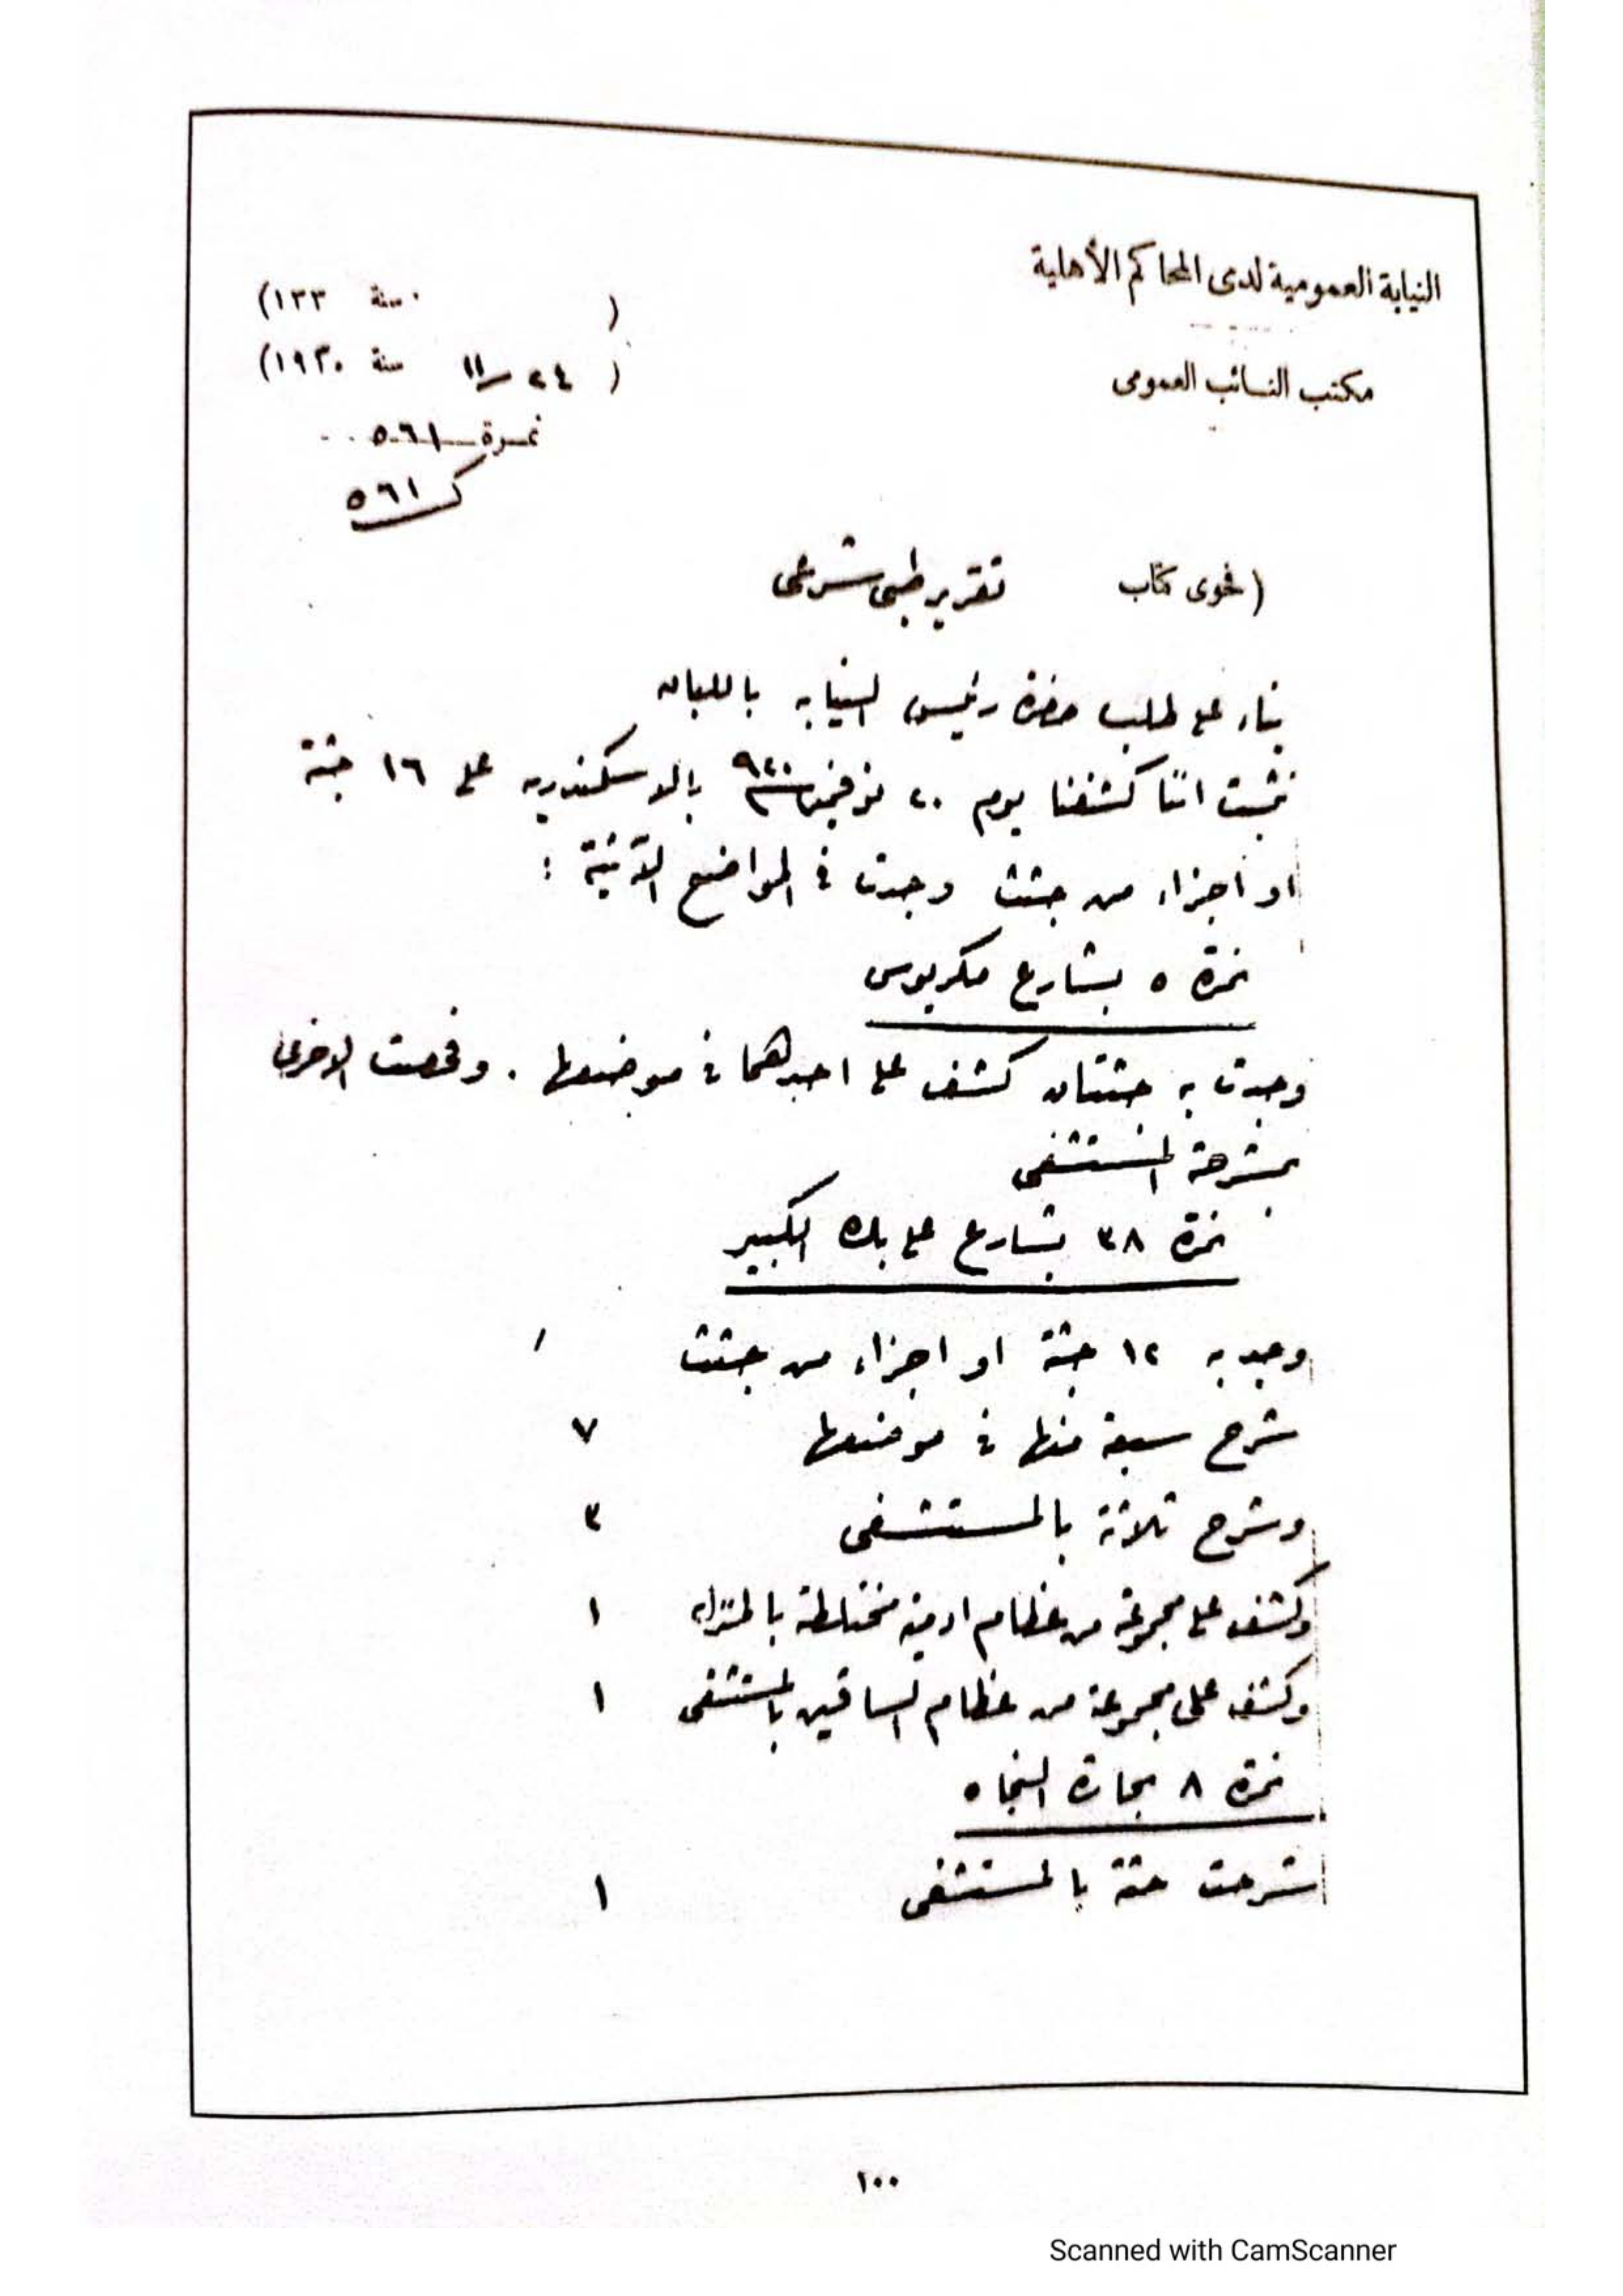 النيابة العمومية لدى المحاكم الأهلية
( سنة ١٣٣)
مكتب النائب العمومى
( ٢٤ ـ ١١ سنة ١٩٢٠)
نمرة ٥٦١
ك ٥٦١
(فحوى كتاب تقرير طبى شرعى
بناء على طلب حضرة رئيس النيابه باللبان
نثبت اننا كشفنا يوم ٢٠ نوفمبر ٩٢٠ بالاسكندريه على ١٦ جثة
او اجزاء من جثث وجدت فى المواضع الآتية :
نمرة ٥ بشارع مكربوس
وجدت به جثتان كشف على احدهما فى موضعها . وفحصت الاخرى
بمشرحة المستشفى
نمرة ٣٨ بشارع على بك الكبير
وجد به ١٢ جثة او اجزاء من جثث
شرح سبعة منها فى موضعها ٧
وشرح ثلاثة بالمستشفى ٣
وكشف على مجموعة من عظام ادمية مختلطة بالمنزل ١
وكشف على مجموعة من عظام الساقين بالمستشفى ١
نمرة ٨ بحارة النجاه
شرحت جثة بالمستشفى ١
١٠٠
Scanned with CamScanner